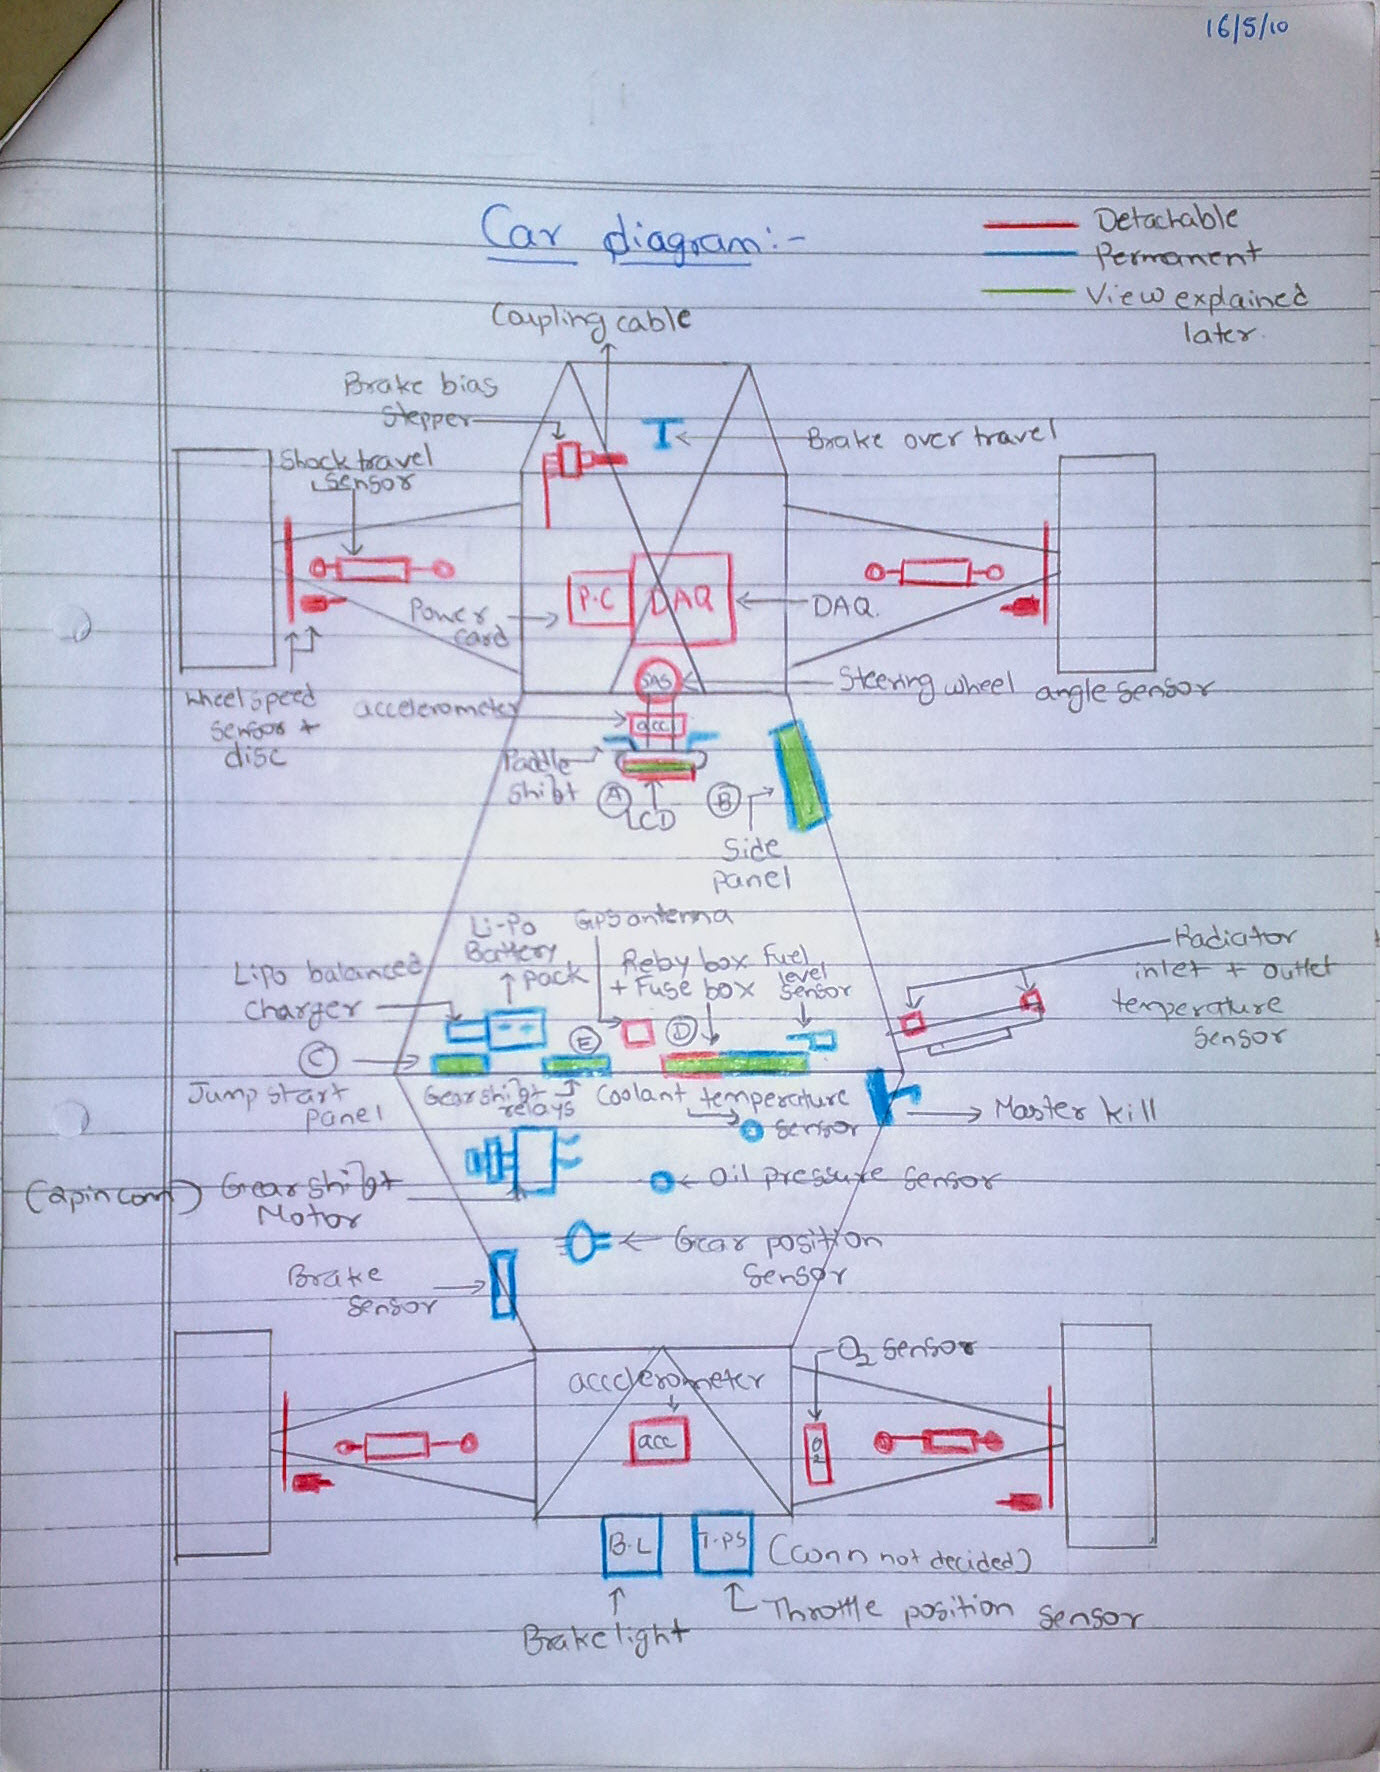 16/5/10
Car diagram:-
Detachable
Permanent
View explained
later.
Coupling cable
Brake bias
stepper
Brake over travel
Shock travel
sensor
P.C
DAQ
DAQ.
Power
card
SAS
Steering wheel angle sensor
wheel speed
sensor +
disc
accelerometer
acc
Paddle
shift
A
LCD
B
Side
panel
Li-Po
Battery
pack
GPS antenna
Relay box
+ Fuse box
Fuel
level
sensor
Radiator
inlet + outlet
temperature
sensor
LiPo balanced
charger
C
E
D
Jump start
panel
Gear shift
relays
Coolant temperature
sensor
Master kill
(2 pin conn) Gear shift
Motor
Oil pressure sensor
Gear position
sensor
Brake
sensor
O2 sensor
accelerometer
acc
O2
B.L
T.PS
(conn not decided)
Brake light
Throttle position sensor